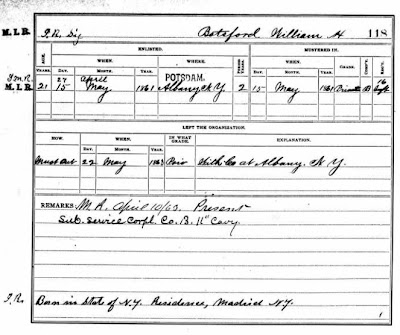 M.I.R. I.R. Sig Botsford William H. 118
AGE. ENLISTED. MUSTERED IN.
WHEN. WHERE. WHEN. GRADE. COMP'Y. REG'T.
YEARS. DAY. MONTH. YEAR. DAY. MONTH. YEAR.
27 April POTSDAM. 16
M.I.R. 21 15 May 1861 Albany N Y 2 15 May 1861 Private B
LEFT THE ORGANIZATION.
HOW. WHEN. IN WHAT GRADE. EXPLANATION.
DAY. MONTH. YEAR.
Must Out 22 May 1863 Priv With Co at Albany, N.Y.
REMARKS: M.R. April 10/63. Present
Sub. service Corpl. Co. B. 11" Cavy.
I.R. Born in State of N.Y. Residence, Madrid N.Y.